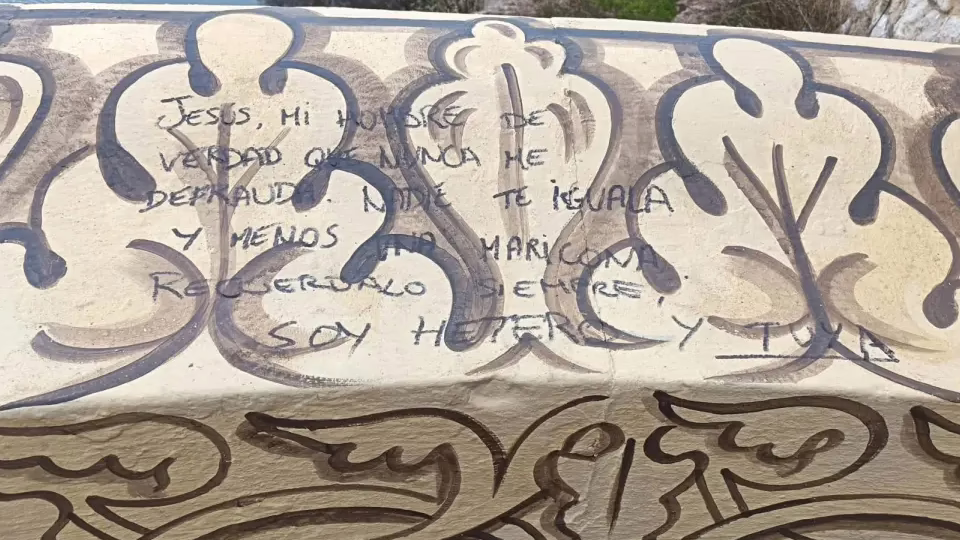 JESUS, MI HOMBRE DE
VERDAD QUE NUNCA ME
DEFRAUDA. NADIE TE IGUALA
Y MENOS UNA MARICONA.
RECUERDALO SIEMPRE;
SOY HETERO Y TUYA